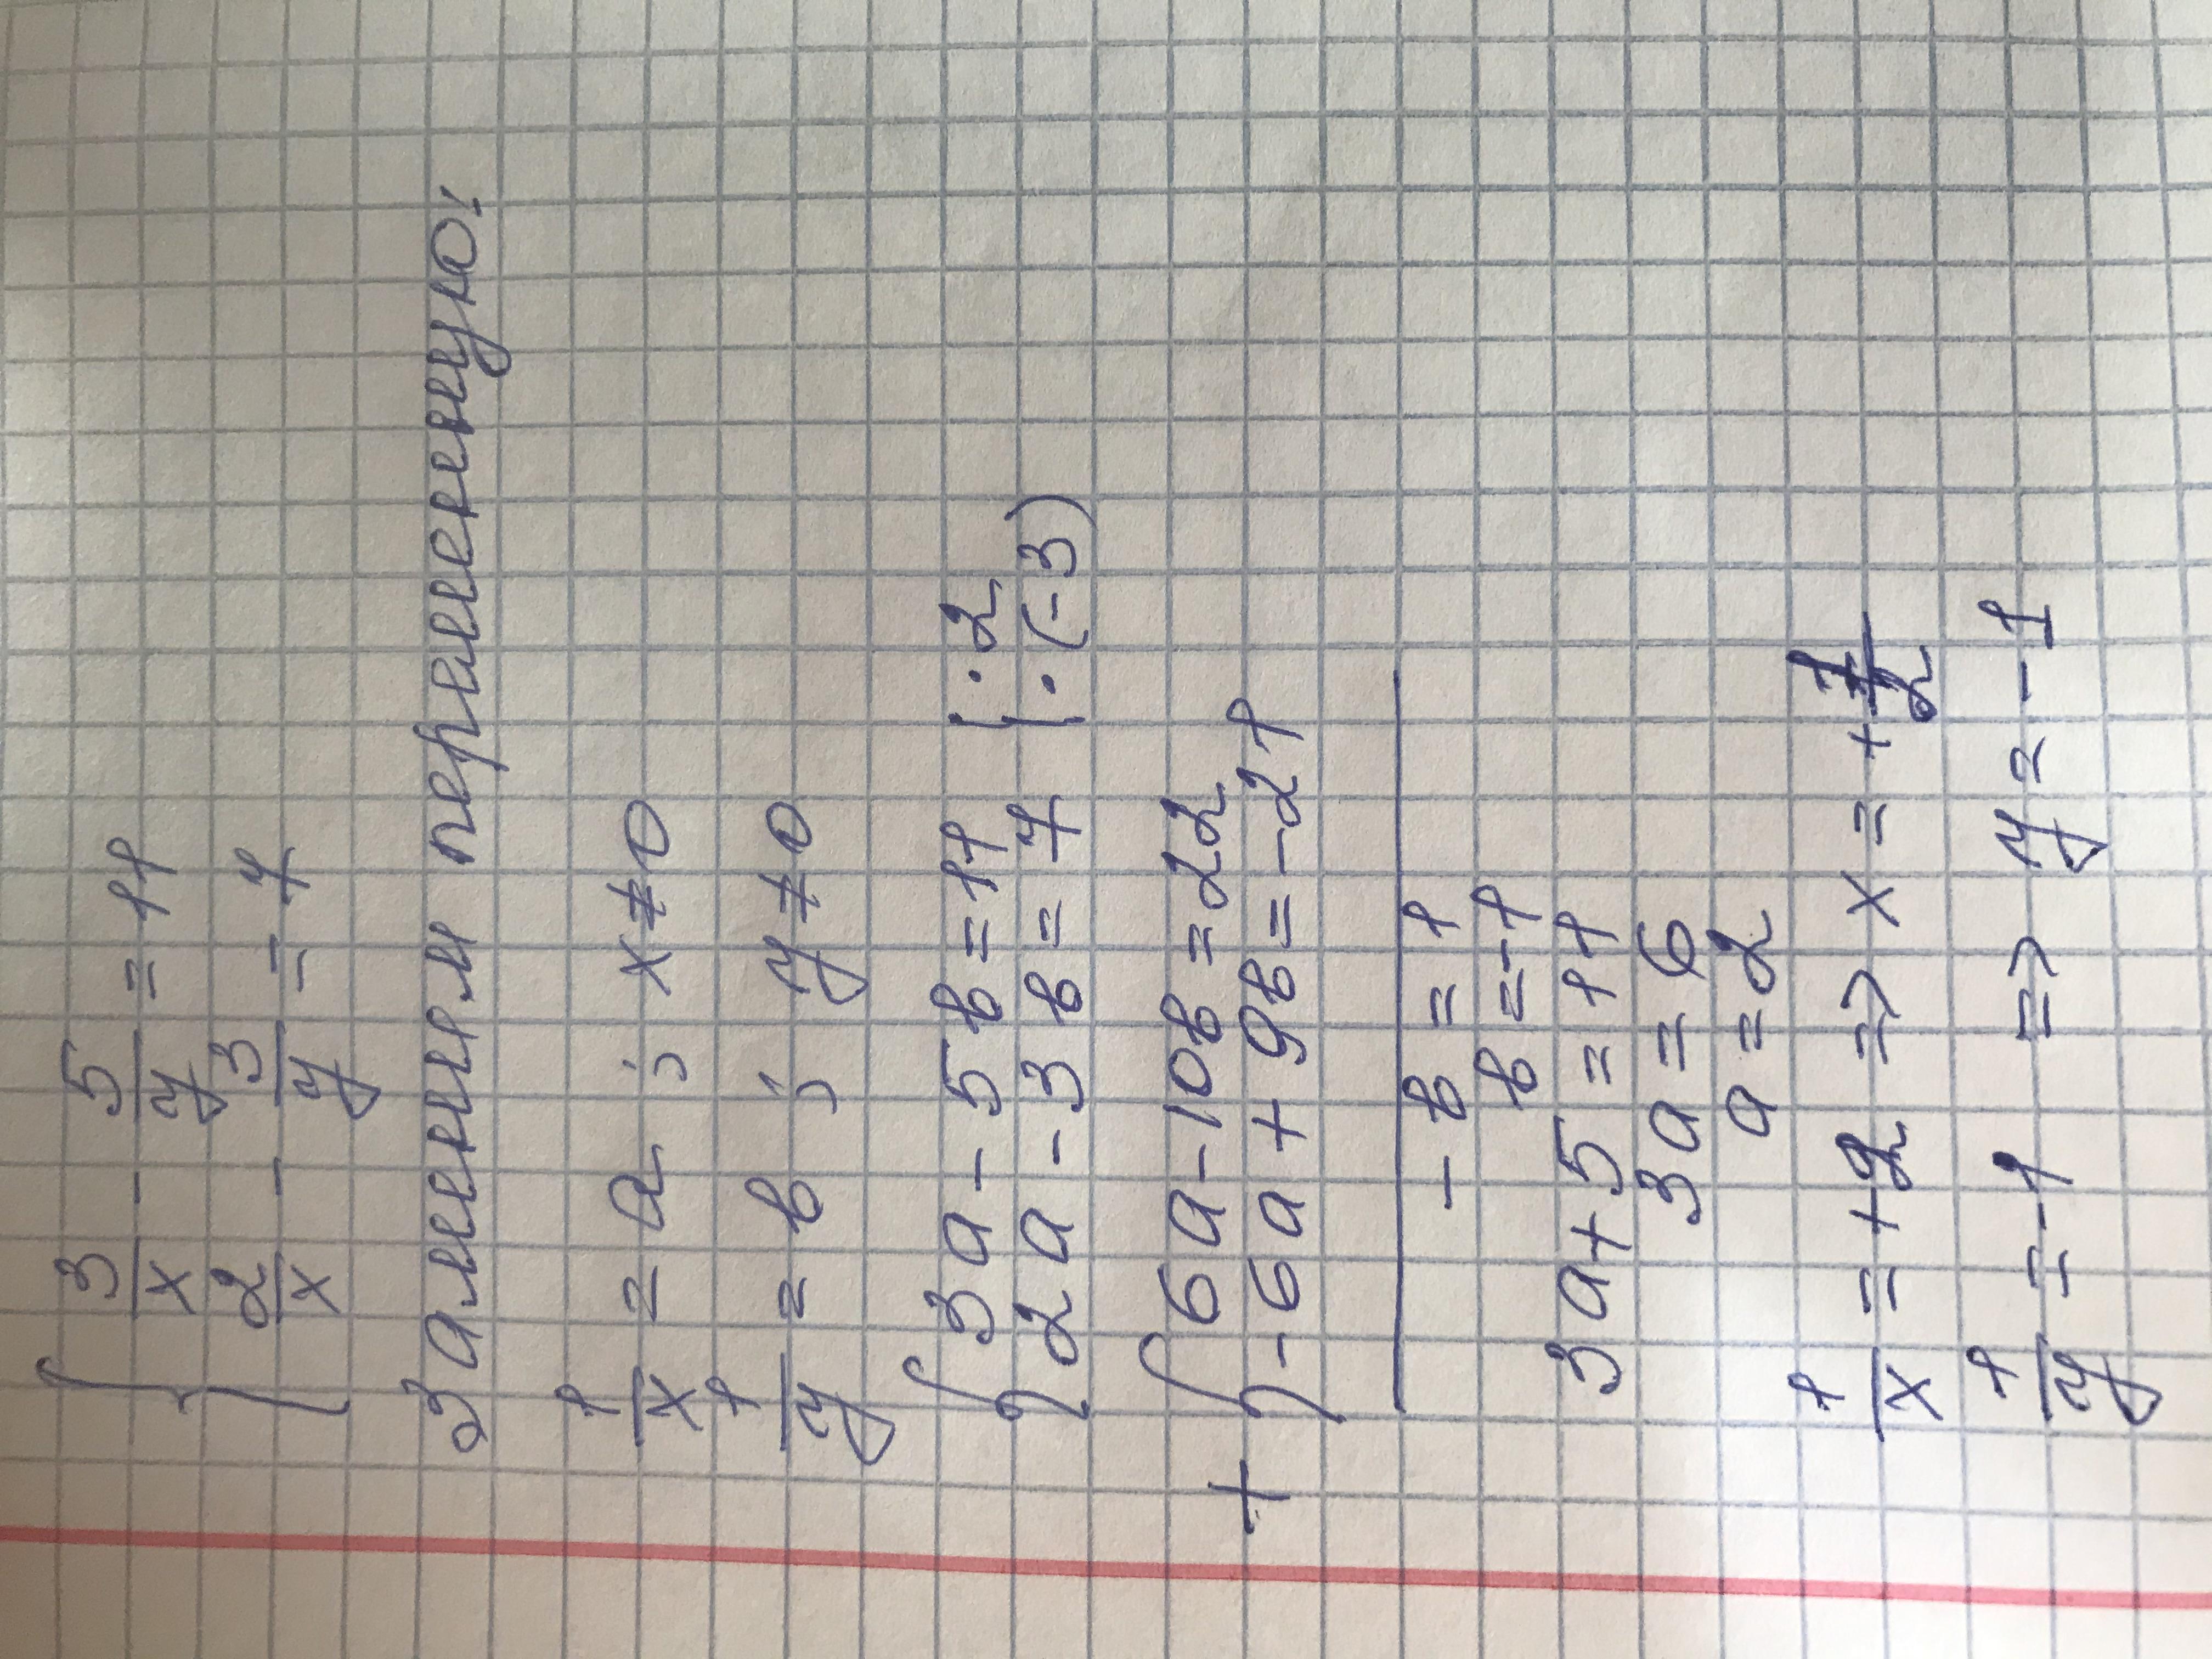 { 3/x - 5/y = 11
2/x - 3/y = 7
Заменим переменную:
1/x = a ; x ≠ 0
1/y = b ; y ≠ 0
{ 3a - 5b = 11 | · 2
2a - 3b = 7 | · (-3)
+ { 6a - 10b = 22
-6a + 9b = -21
- b = 1
b = -1
3a + 5 = 11
3a = 6
a = 2
1/x = +2 => x = +1/2
1/y = -1 => y = -1